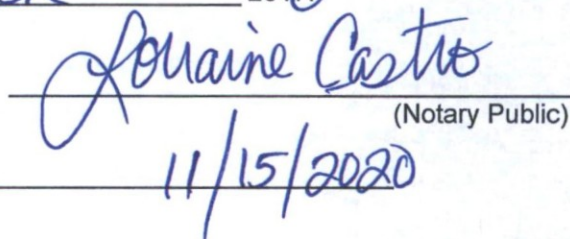 Lorraine Castro
(Notary Public)
11/15/2020